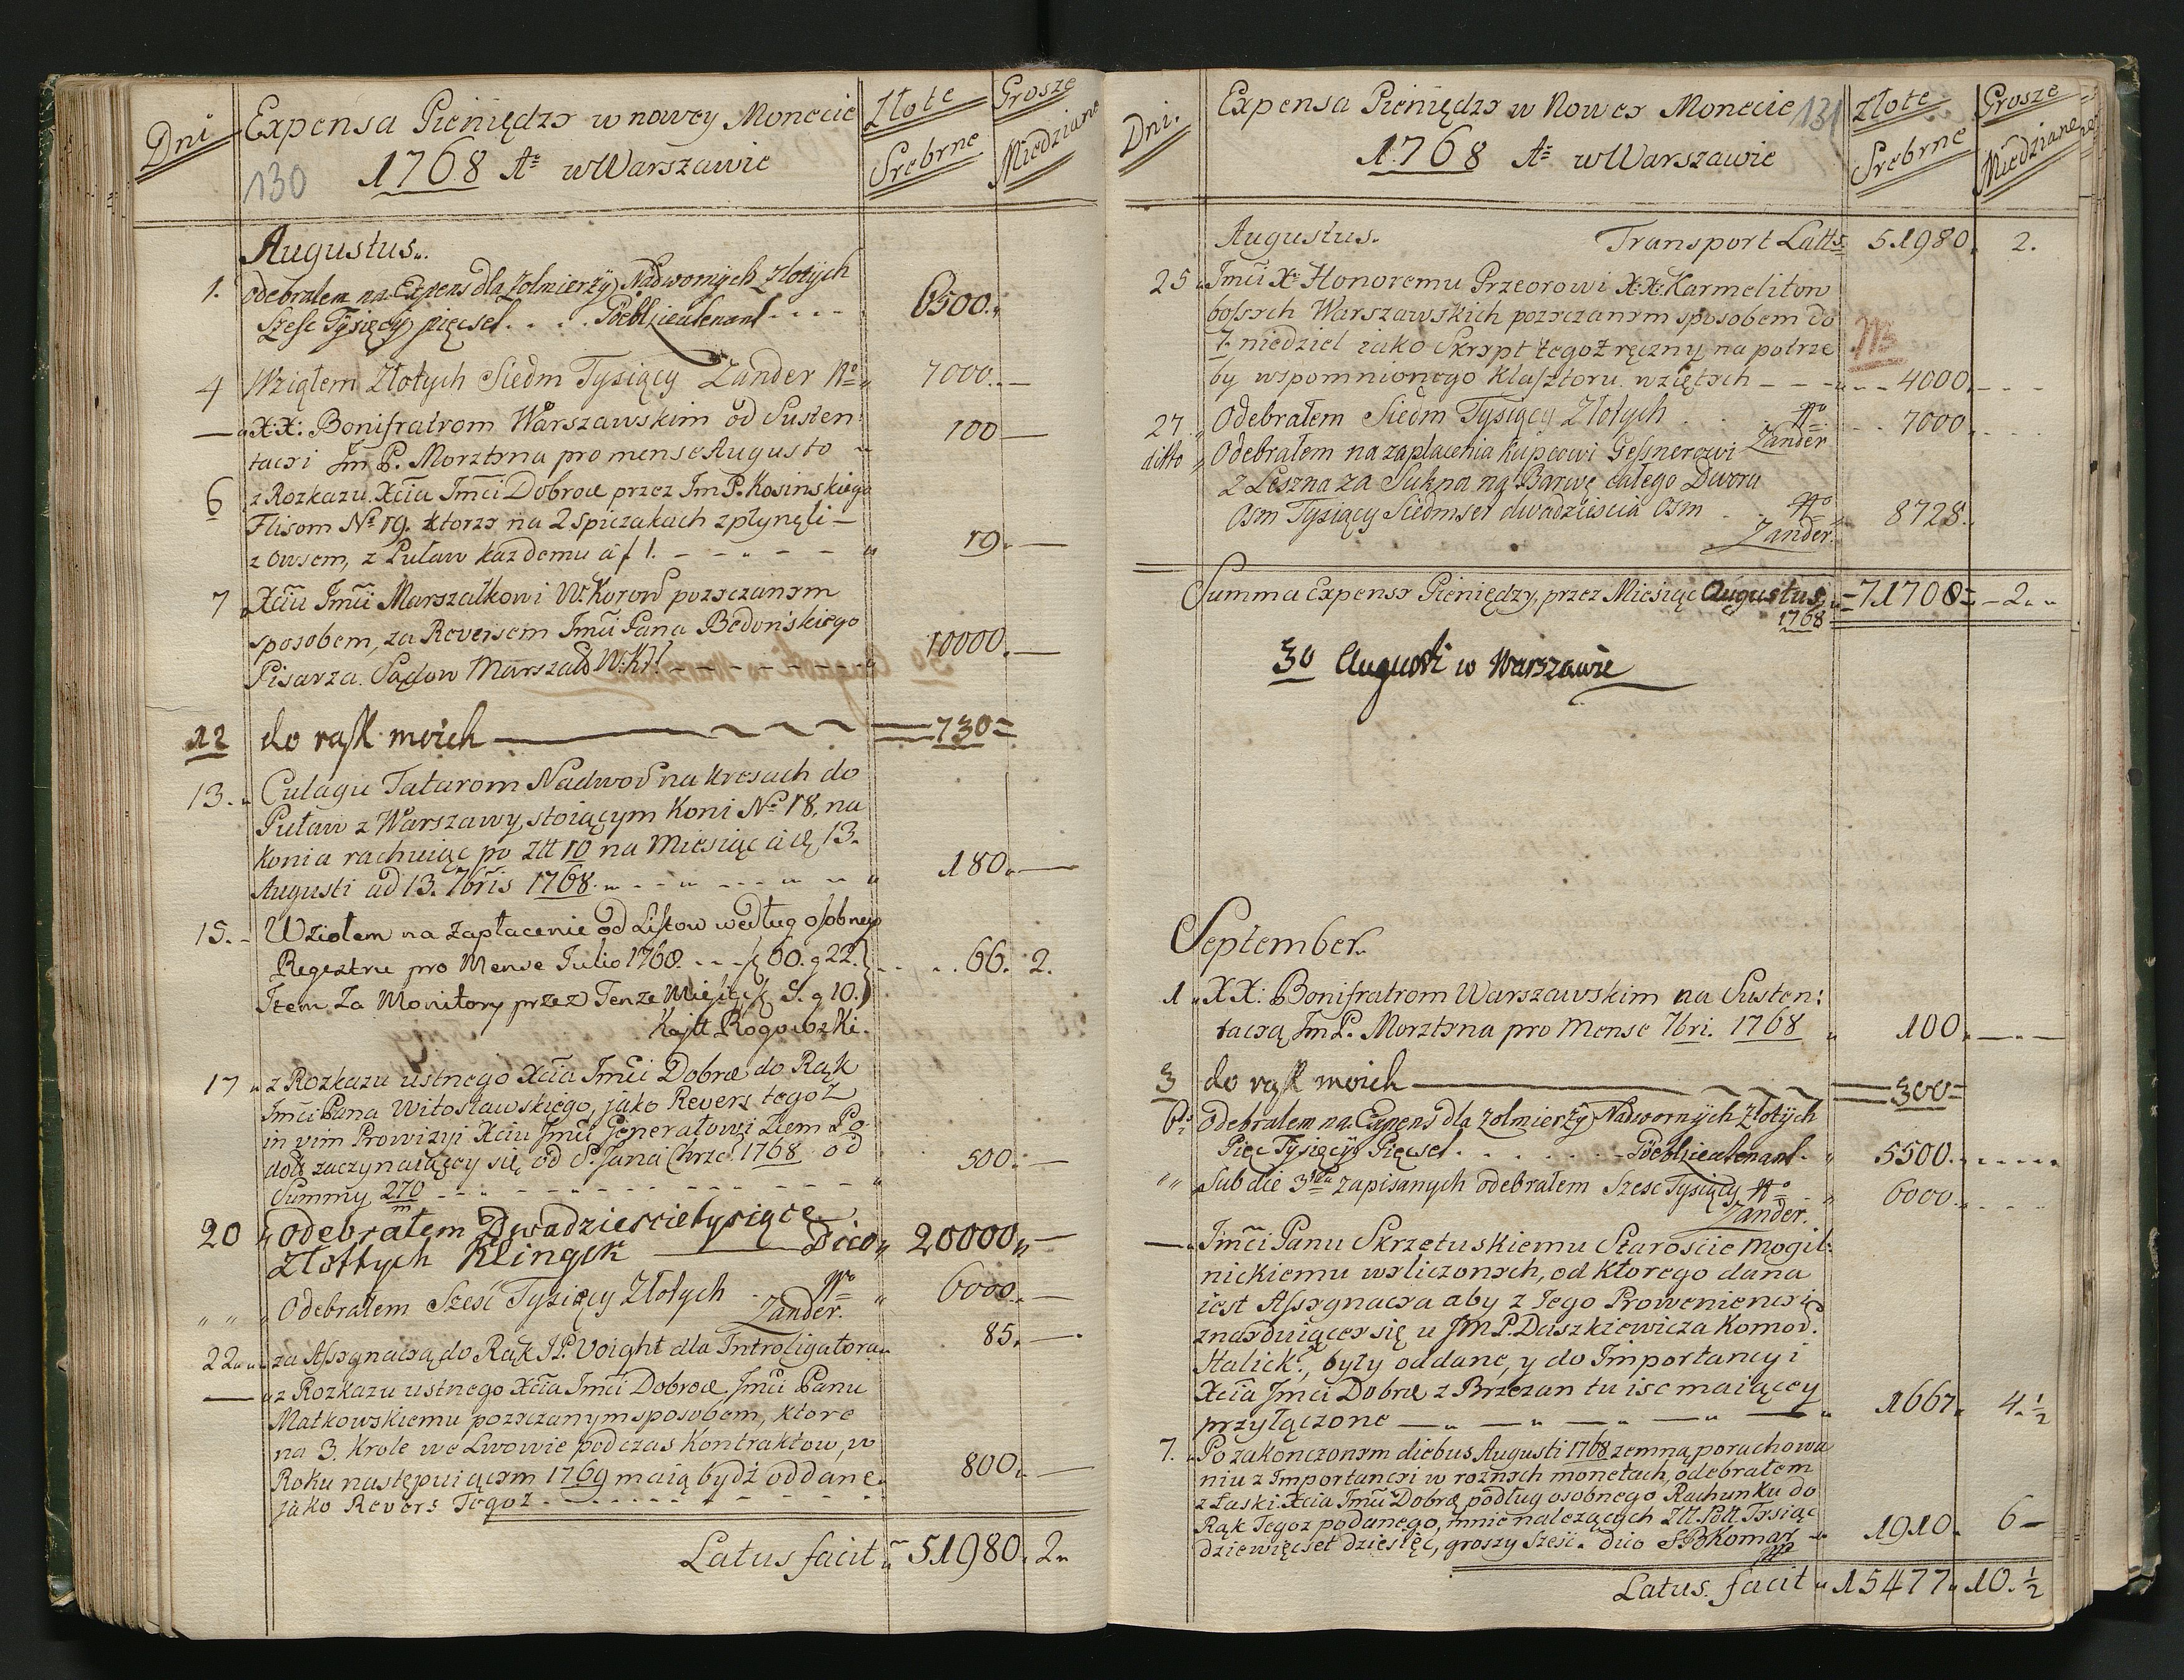 Dni
Expensa Pieniędzy w nowey Monecie
Złote
Grosze
130
1768 Aº w Warszawie
Srebrne
Miedziane
Augustus.
1. Odebrałem na Expens dla Zolnierzÿ Nadwornÿch Złotÿch
Szesc Tÿsięcÿ pięcset . . . . 6500.
4 Wziąłem Złotych Siedm Tysiący Zander 7000. —
— XX: Bonifratrom Warszawskim od Susten:
tacyi Jm P. Morztyna pro mense Augusto 100 —
6 z Rozkazu Xcia Jmci Dobrod przez Jm P. Kosinskiego
Flisom Nº 19. ktorzy na 2 Spiczakach zpłynęli —
z owsem, z Puław każdemu à f 1. — — — — 19. —
7 Xciu Jmci Marszałkowi W. Koron pozyczanym
sposobem, za Reversem Jmci Pana Bedońskiego
Pisarza Sądow Marszałd W. K. — — — — — 10000. —
12 do rąk moich ——— 730
13. Culagu Tatarom Nadwor na kresach do
Puław z Warszawy, stoiącym Koni Nº 18, na
konia rachuiąc po Ztt 10 na Miesiąc à d. 13.
Augusti ad 13. 7bris 1768. 180. —
15. Wziołem na zapłacenie od Listow według osobnego
Regestru pro Mense Julio 1768. . . . f 60. g 22.
66. 2.
Item Za Monitory przez Tenze Miesiąc f 5. g 10.
Kajtt Rogowski.
17 z Rozkazu ustnego Xcia Jmci Dobrod do Rąk
Jmci Pana Witosławskiego, jako Revers tegoż
in vim Prowizyi Xciu Jmci Generałowi Ziem Po
dols zaczynaiącey się od S. Jana Chrzc 1768 od
500. —
Summy 270
m
20 Odebrałem Dwadziescie tysiące
Złottych Klingek ——— Dico 20000 —
" " Odebrałem Szesć Tysiący Złotych Zander. 6000. —
22 za Assygnacyą do Rąk JP. Voight dla Introligatora 85. —
— z Rozkazu ustnego Xcia Jmci Dobrod. Jmci Panu
Małkowskiemu pozyczanym sposobem, ktore
na 3. Krole we Lwowie podczas Kontraktow, w
Roku następuiącym 1769 maią bydź oddane 800. —
jako Revers Tegoż
Latus facit 51980. 2
Dni.
Expensa Pieniędzy w Nowey Monecie
131
Złote
Grosze
1768 Aº w Warszawie
Srebrne
Miedziane
Augustus. Transport Latts 51980. 2.
25 Jmci X. Honoremu Przeorowi XX. Karmelitow
bosych Warszawskich pozyczanym sposobem do
7. niedziel iako Skrypt tegoż ręczny, na potrze
by wspomnionego klasztoru wziętych — — — 4000.
NB
27 Odebrałem Siedm Tysiący Złotych Zander 7000.
ditto Odebrałem na zapłacenia kupcowi Gessnerowi
z Leszna za Sukna na Barwę całego Dworu
Osm Tysiący Siedmset dwadziescia Osm Zander. 8728.
Summa Expensy Pieniędzy, przez Miesiąc Augustus 71708 — 2.
1768
30 Augusti w Warszawie
September.
1 XX: Bonifratrom Warszawskim na Susten:
tacyą Jm P. Morztyna pro Mense 7bri. 1768 100.
3 do rąk moich ——— 300
6 Odebrałem na Expens dla Zolnierzÿ Nadwornÿch Złotÿch
Pięc Tÿsięcÿ Pięcset . . . . . . 5500.
" " Sub die 3tia zapisanych odebrałem Szesc Tysiący Zander. 6000.
— Jmci Panu Skrzetuskiemu Staroscie Mogil:
nickiemu wyliczonych, od ktorego dana
iest Assygnacya aby z Jego Proweniencyi
znayduiącey się u JM P. Daszkiewicza Komor.
Halick., były oddane, y do Importancyi
Xcia Jmci Dobrd z Brzezan tu isc maiącey
przyłączone — — — — — 1667. 4. ½
7. Po zakonczonym diebus Augusti 1768 zemną porachowa
niu z Importancyi w roznych monetach, odebrałem
z Łaski Xcia Jmci Dobrd podług osobnego Rachunku do
Rąk Tegoz podanego, mnie nalezących Ztt. Poll. Tysiąc
dziewięcset dziesięc, groszy Szesć. Dico SBKomar 1910. 6 —
Latus facit 15477 10. ½